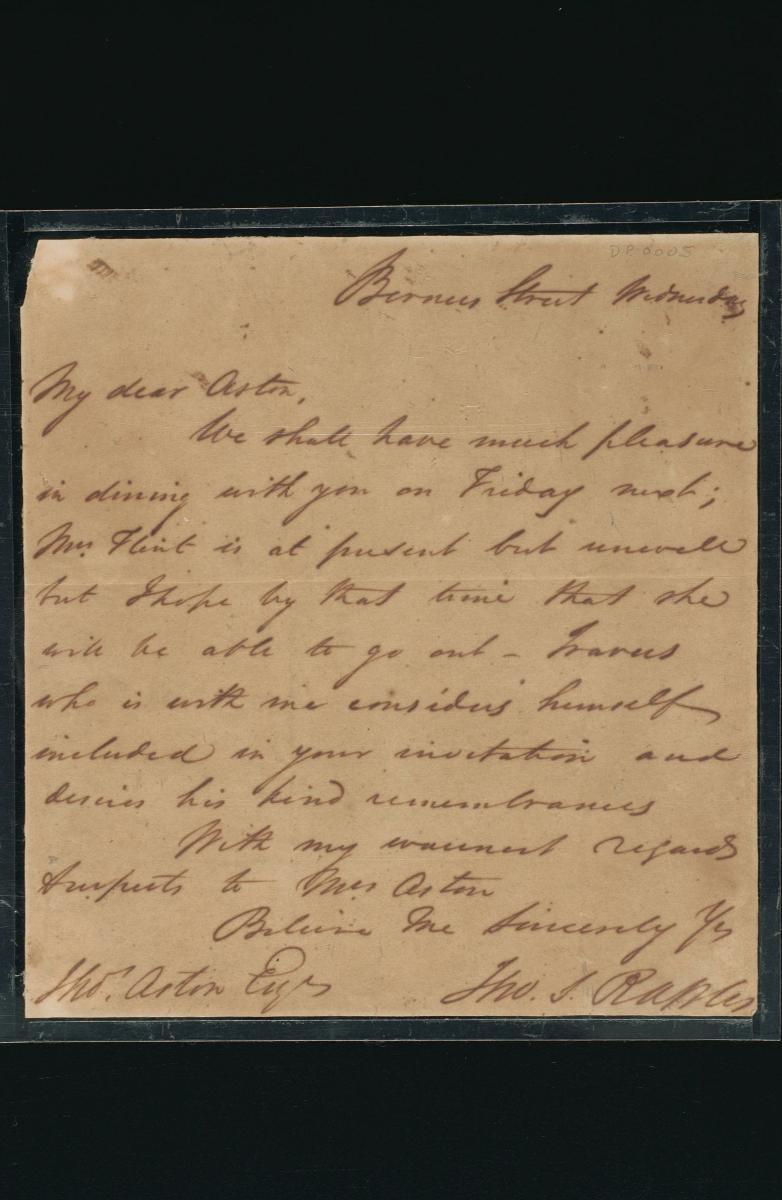 D.P 0005
Berners Street Wednesday
My dear Aston,
We shall have much pleasure
in dining with you on Friday next;
Mrs. Flint is at present but unwell
but I hope by that time that she
will be able to go out – Travers
who is with me considers himself
included in your invitation and
desires his kind remembrances
With my warmest regards
& respects to Mrs Aston
Believe Me Sincerely Yrs
Thos. Aston Esqr
Tho. S. Raffles